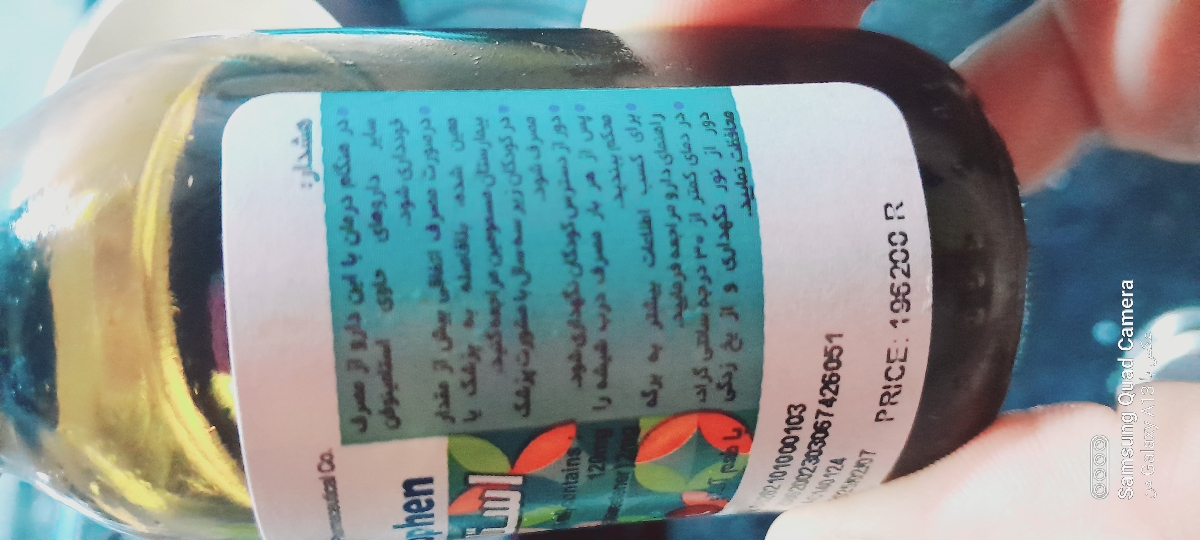 هشدار:
• در هنگام درمان با این دارو از مصرف
سایر داروهای حاوی استامینوفن
خودداری شود.
• درصورت مصرف اتفاقی بیش از مقدار
معین شده، بلافاصله به پزشک یا
بیمارستان مسمومین مراجعه کنید.
• در کودکان زیر سه سال با مشورت پزشک
مصرف شود.
• دور از دسترس کودکان نگهداری شود.
• پس از هر بار مصرف درب شیشه را
محکم ببندید.
• برای کسب اطلاعات بیشتر به برگه
راهنمای دارو مراجعه فرمایید.
• در دمای کمتر از ۳۰ درجه سانتی گراد،
دور از نور نگهداری و از یخ زدگی
محافظت نمایید.
Co.
phen
contains
120mg
با طعم
PRICE: 196200 R
Samsung Quad Camera
عکس با Galaxy A13 من